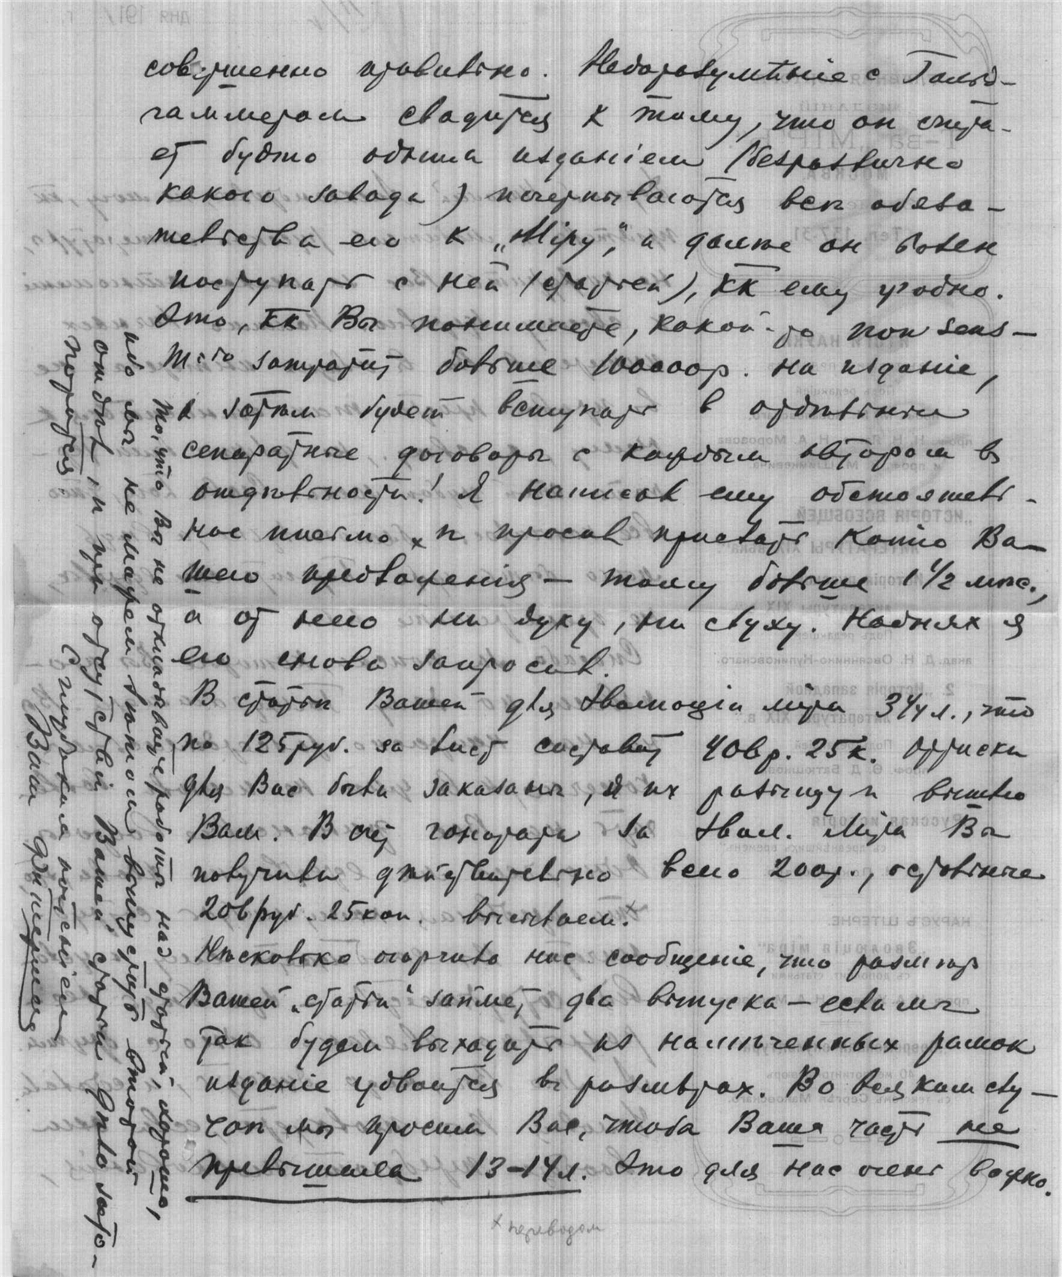 совершенно правильно. Недоразумѣніе с Гольд-
гаммером сводится к тому, что он счита-
ет будто одним изданіем (безразлично
какого завода) исчерпываются всѣ обяза-
тельства его к „Міру“, а далѣе он волен
поступать с ней (статьей), кк ему угодно.
Это, кк Вы понимаете, какой-то non sens –
Т-во затратит больше 100000р. на изданіе,
и затѣм будет вступать в отдѣльныя
сепаратные договоры с каждым автором в
отдѣльности! Я написал ему обстоятель-
ное письмо и просил прислать копію Ва-
шего предложенія – тому больше 1½ мѣс.,
а от него ни духу, ни слуху. На днях я
его снова запросил.
В статьѣ Вашей для Эволюціи міра 3¼ л., что
по 125 руб. за лист составит 406р. 25к. Оттиски
для Вас были заказаны, я их разыщу и вышлю
Вам. В счет гонорара за Эвол. Міра Вы
получили дѣйствительно всего 200р., остальные
206 руб. 25 коп. высылаем.x
Нѣсколько огорчило нас сообщеніе, что размѣр
Вашей „статьи“ займет два выпуска – если мы
так будем выходить из намѣченных рамок
изданіе удвоится в размѣрах. Во всяком слу-
чаѣ мы просим Вас, чтобы Ваша часть не
превышала 13–14 л. Это для нас очень важно.
x переводом
То, что Вы не откладываете работы над статьей, хорошо,
ибо мы не можем выпускать второй
отдѣл, и при отсутствіи Вашей статьи дѣло зато-
рмозится
С глубоким почтеніем
Ваш